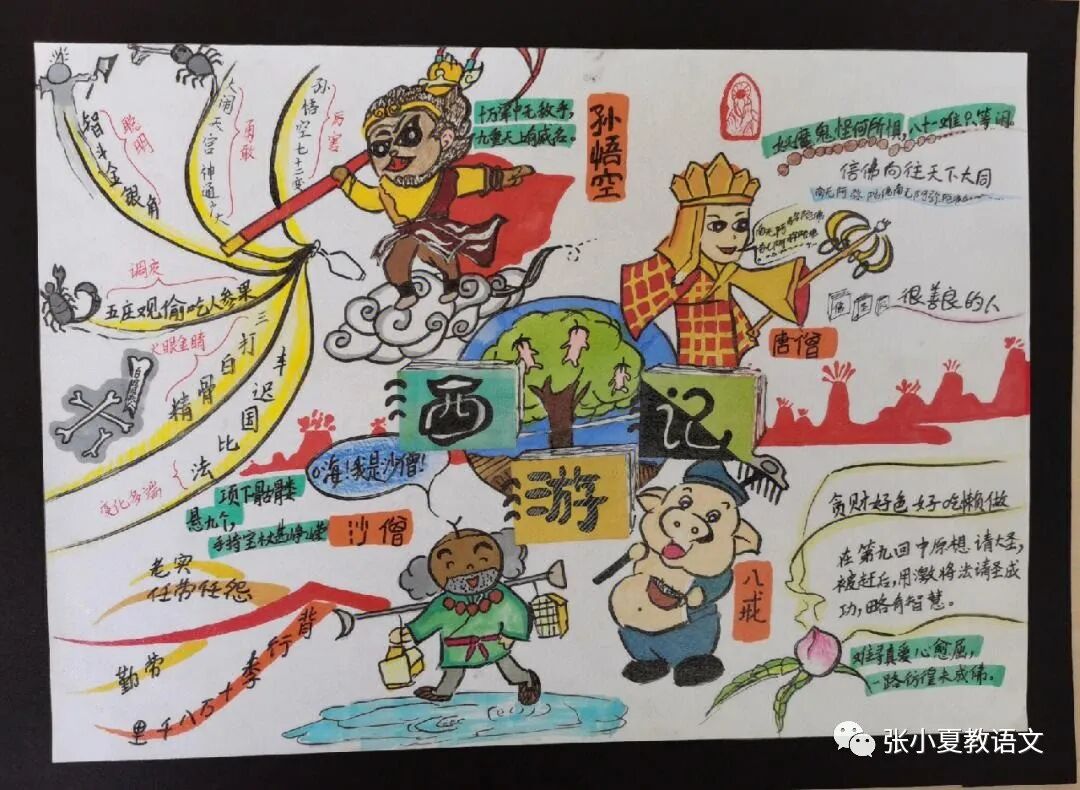 西
游
记
孙悟空
十万军中无敌手,
九重天上有威名。
孙悟空七十二变
厉害
大闹天宫神通广大
勇敢
智斗金银角
聪明
五庄观偷吃人参果
调皮
三打白骨精
火眼金睛
车迟国比法
变化多端
唐僧
妖魔鬼怪何所惧,八十一难只等闲。
信佛向往天下大同
南无阿弥陀佛南无阿弥陀佛
很善良的人
沙僧
嗨!我是沙僧!
项下骷髅
悬九个,
手持宝杖甚峥嵘
老实
任劳任怨
勤劳
背行李十万八千里
八戒
贪财好色好吃懒做
在第九回中原想请大圣,
被赶后,用激将法请圣成
功,略有智慧。
难寻真爱心愈屈,
一路彷徨未成佛。
张小夏教语文